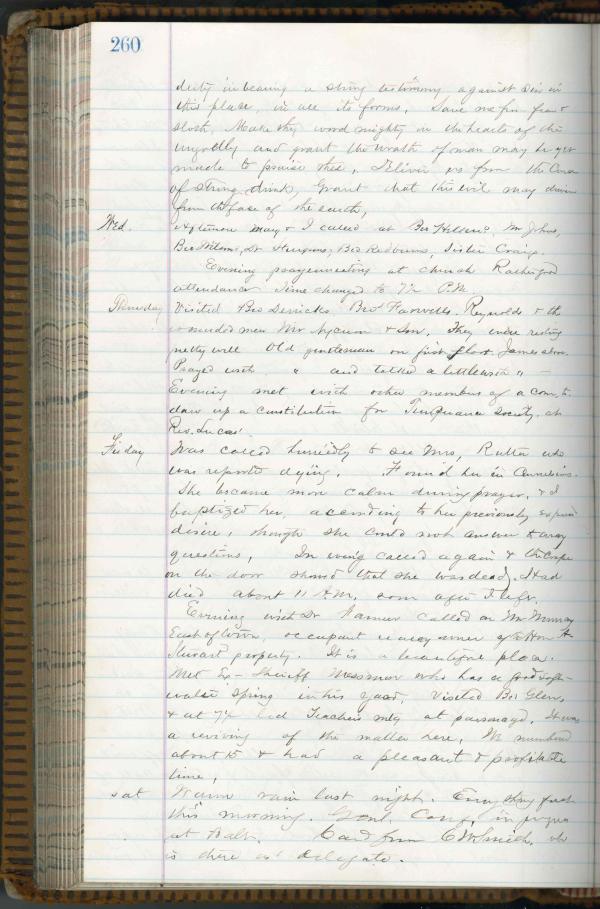 260
duty in bearing a strong testimony against sin in
this place, in all its forms. Save me from fear &
sloth. Make thy word mighty in the hearts of the
ungodly and grant the wrath of man may be yet
made to praise thee. Deliver us from the Curse
of strong drink, Grant that this evil may
from the face of the earth.
Wed. Afternoon Mary & I called at Bro Mr Johns,
Bro Wilsons, Dr Bro Redburns, Sister Craigs.
Evening prayermeeting at Church Rather good
attendance Time changed to 7½ P.M.
Thursday Visited Bro Bro Farwells. Reynolds & the
wounded men Mr & Son. They were resting
pretty well Old gentleman on first floor. James above.
Prayed with " and talked a little with " —
Evening met with other members of a com. to
draw up a constitution for Temperance Society at
Rev. Lucas'
Friday Was called hurriedly to see Mrs. Rutter who
was reported dying. Found her in
She became more calm during prayer, & I
baptized her, according to her previously expressed
desire, though she could not answer to any
questions. In evening called again & the Crape
on the door showed that she was dead. Had
died about 11 A.M. soon after I left.
Evening with Dr called on Mr Murray
East of town, occupant owner of the Hon A
Stewart property. It is a beautiful place.
Met Ex-Sheriff Messmore who has a good
water Spring in his yard, Visited Bro Glenn,
& at 7½ led Teachers mtg at parsonage. It was
a reviving of the matter here, We numbered
about 15 & had a pleasant & profitable
time.
Sat Warm rain last night. Everything fresh
this morning. Genl. Conf. in progress
at Balt. Card from C W Smith, who
is there as delegate.